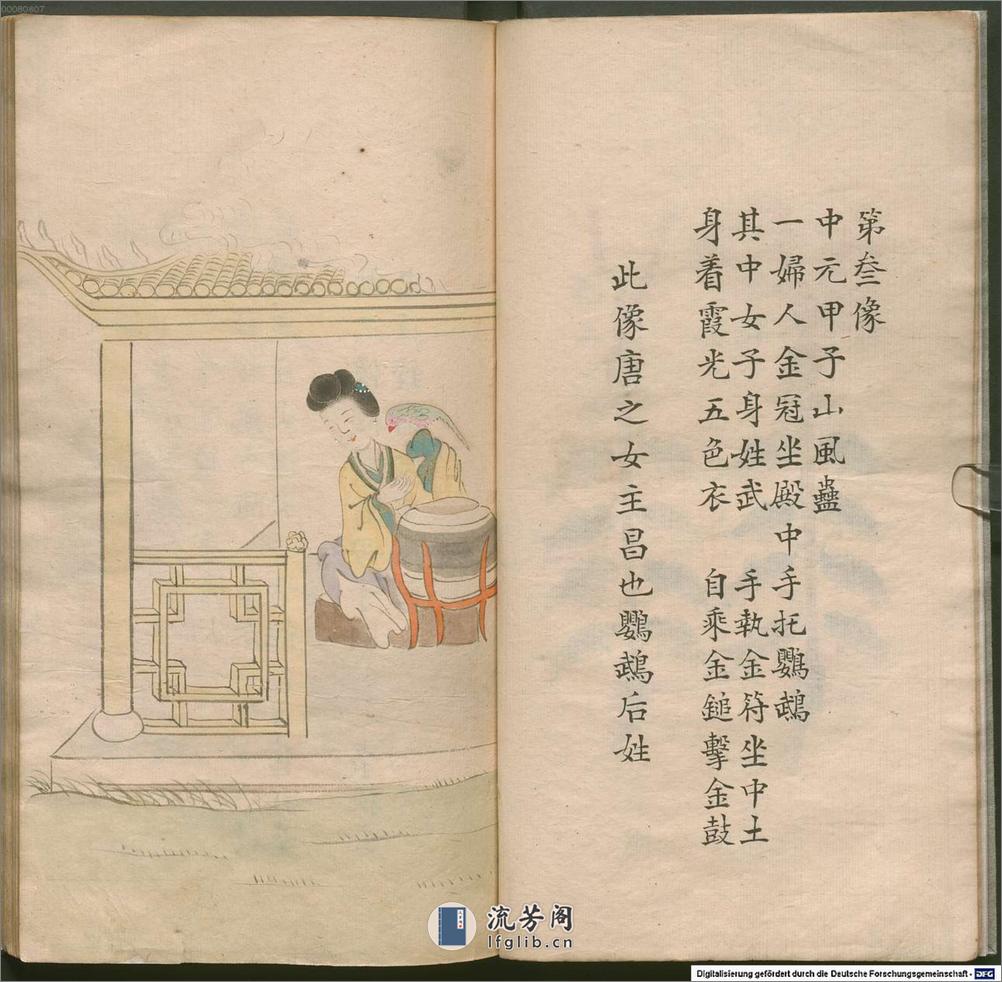 00080807
第叁像
中元甲子山風蠱
一婦人金冠坐殿中手托鸚鵡
其中女子身姓武 手執金符坐中土
身着霞光五色衣 自乘金鎚擊金鼓
此像唐之女主昌也鸚鵡后姓
流芳阁
lfglib.cn
Digitalisierung gefördert durch die Deutsche Forschungsgemeinschaft - DFG